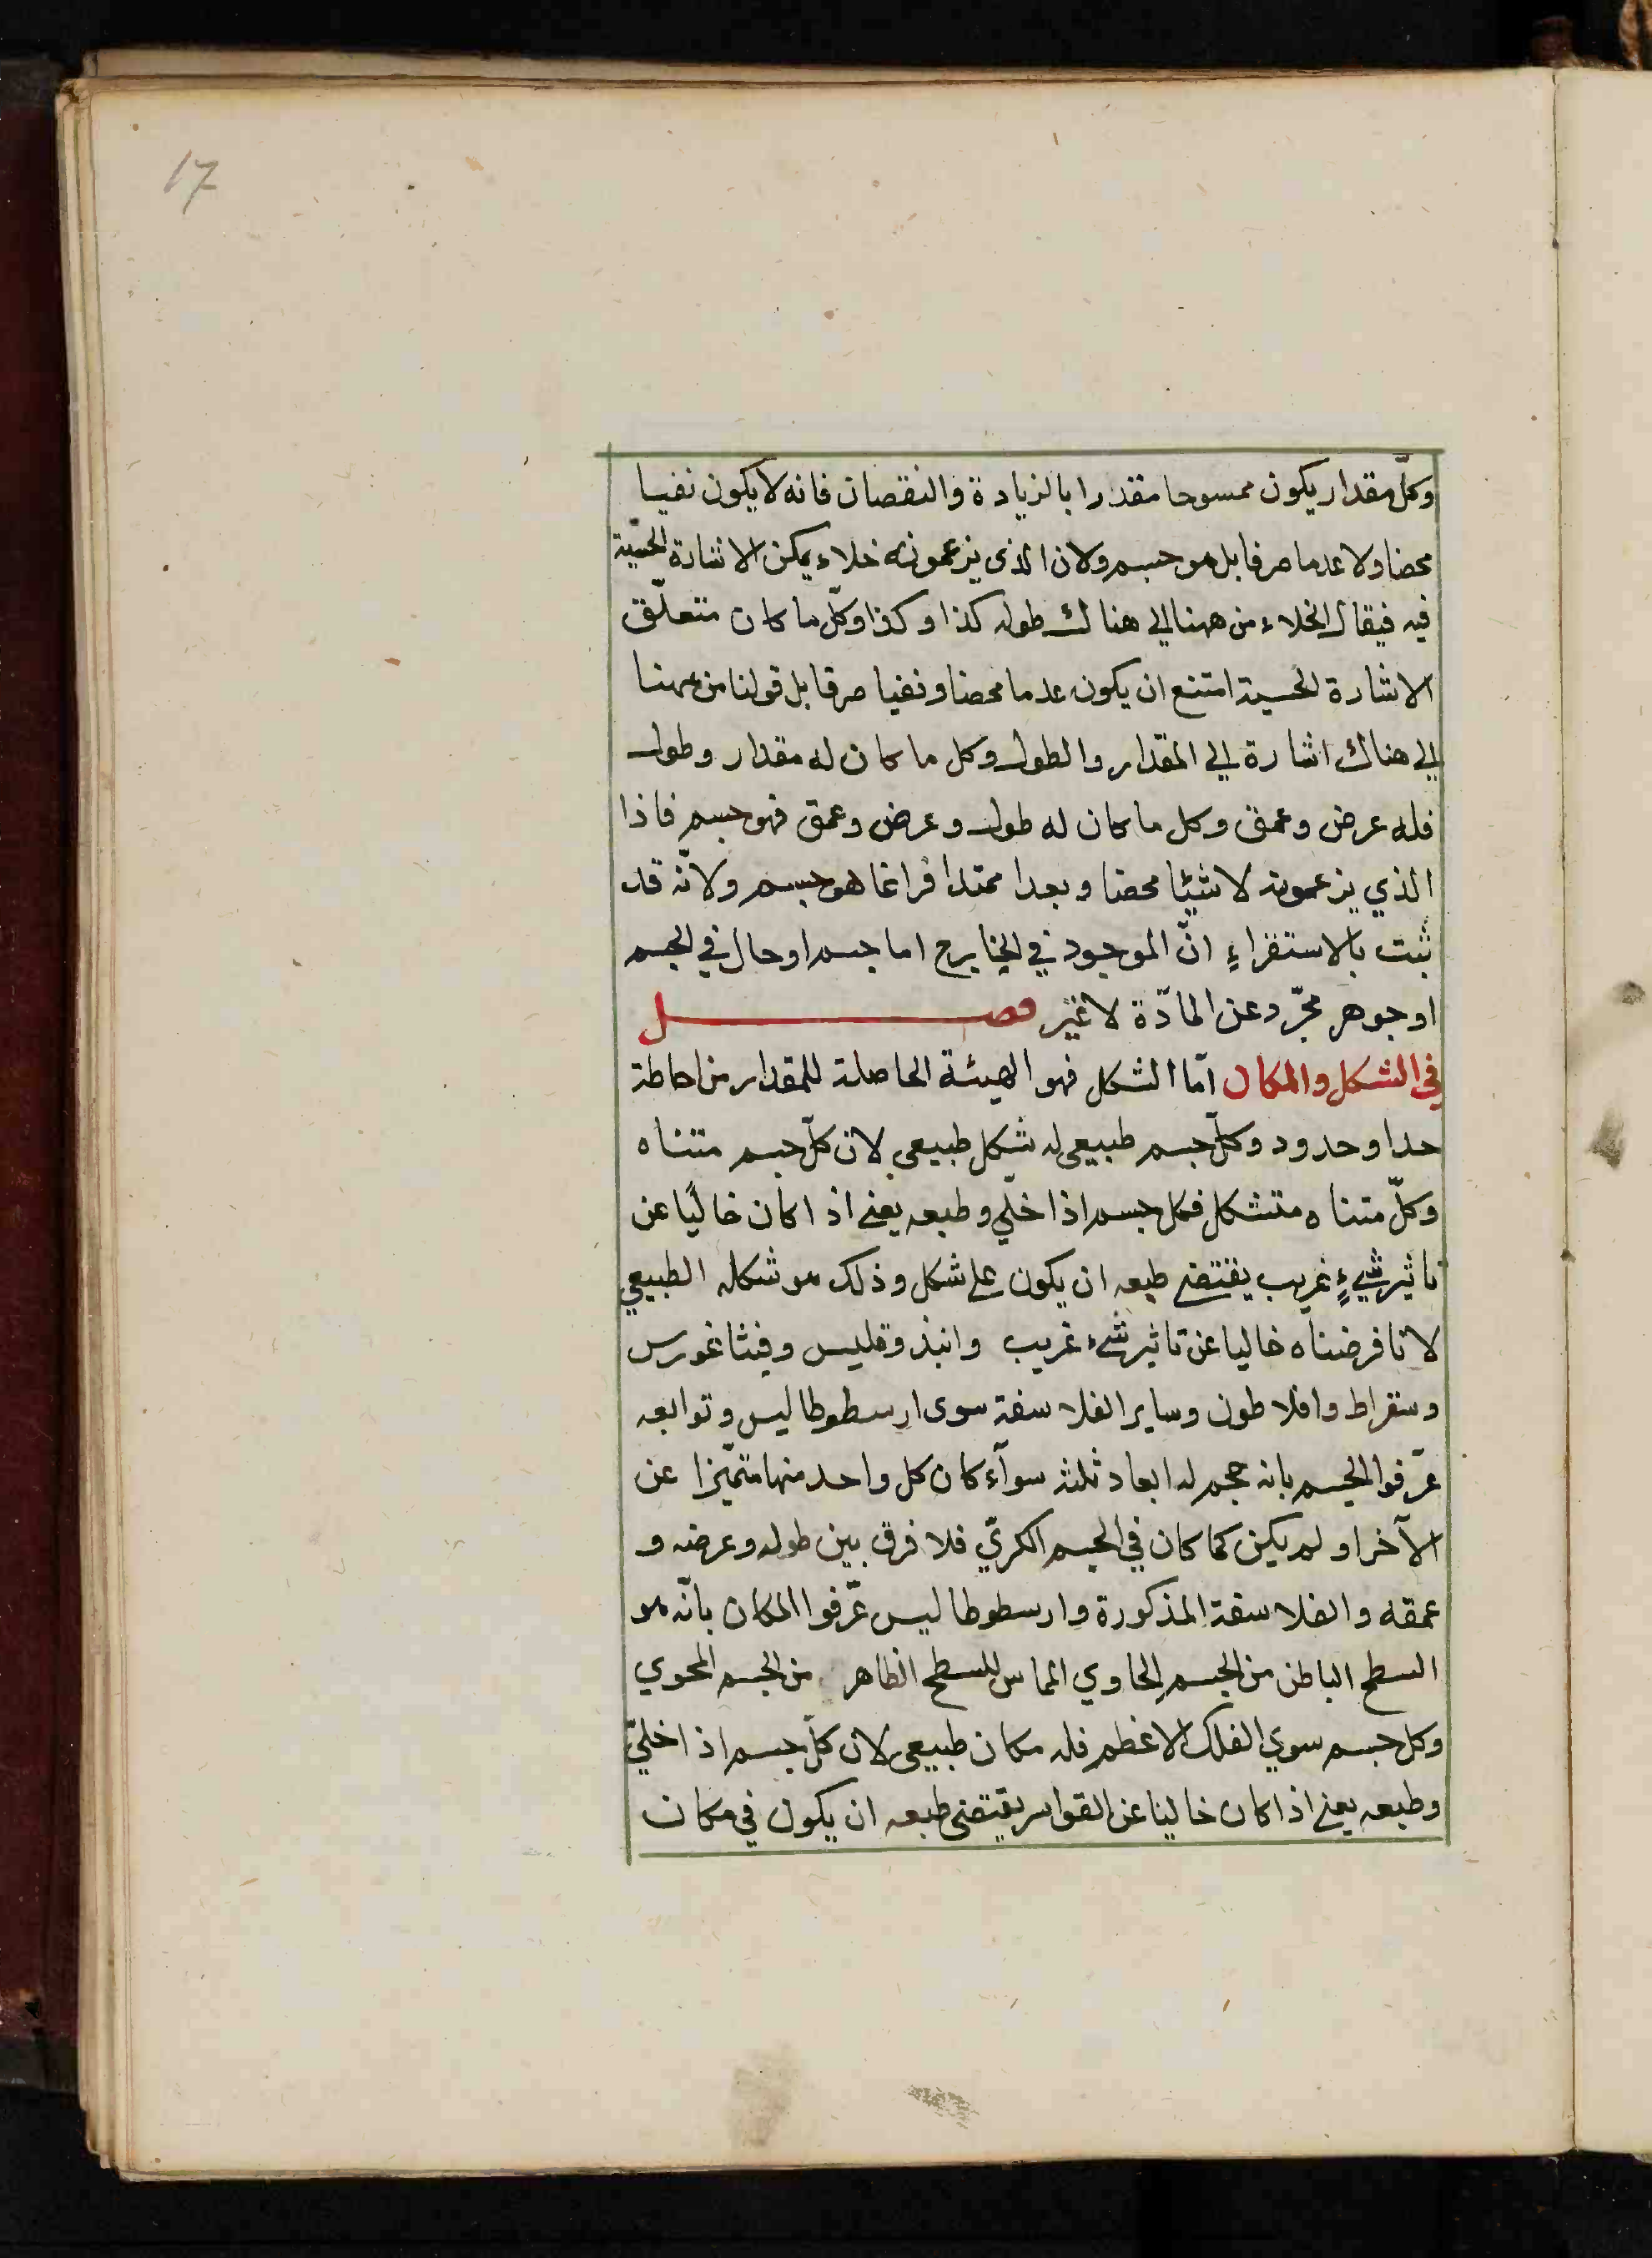 17
وكلّ مقدار يكون ممسوحا مقدرا بالزيادة والنقصان فانه لا يكون نفيا
محضا ولا عدما صرفا بل هو جسم ولان الذى يزعمونه خلاء يمكن الاشارة الحسّية
فيه فيقال الخلاء من ههنا الي هناك طوله كذا وكذا وكلّ ما كان متعلّق
الاشارة الحسية امتنع ان يكون عدما محضا ونفيا صرفا بل قولنا من ههنا
الي هناك اشارة الي المقدار والطول وكل ما كان له مقدار وطول
فله عرض وعمق وكل ما كان له طول وعرض وعمق فهو جسم فاذا
الذي يزعمونه لا شيئا محضا وبعدا ممتدا فراغا هو جسم ولانّه قد
ثبت بالاستقراءِ انّ الموجود في الخارج اما جسم او حال في الجسم
او جوهر مجّرد عن المادّة لا غير فصل
في الشكل والمكان امّا الشكل فهو الهيئة الحاصلة للمقدار من احاطة
حد او حدود وكلّ جسم طبيعى له شكل طبيعى لان كلّ جسم متناه
وكلّ متناه متشكل فكل جسم اذا خلّي وطبعه يعنے اذا كان خاليًا عن
تاثير شيءٍ غريب يقتضے طبعه ان يكون على شكل وذلك هو شكله الطبيعي
لانا فرضناه خاليا عن تاثير شےء غريب وانبذوقليس وفيثاغورس
وسقراط وافلاطون وساير الفلاسفة سوى ارسطوطاليس وتوابعه
عرّفوا الجسم بانه حجم له ابعاد ثلثة سوآء كان كل واحد منها متميّزا عن
الآخر او لم يكن كما كان في الجسم الكريّ فلا فرق بين طوله وعرضه و
عمقه والفلاسفة المذكورة وارسطوطاليس عرّفوا المكان بانّه هو
السطح الباطن من الجسم الحاوي المماس للسطح الظاهر من الجسم المحوي
وكل جسم سوي الفلك الاعظم فله مكان طبيعى لان كلّ جسم اذا خليّ
وطبعه يعنے اذا كان خاليا عن القواسر يقتضى طبعه ان يكون في مكان